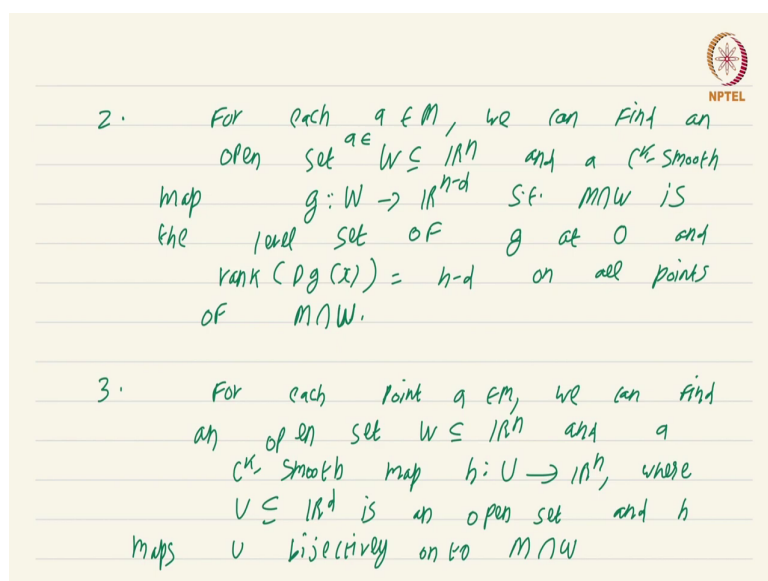 NPTEL
2. For each a ∈ M, we can find an
open set a∈ W ⊆ ℝⁿ and a Cᵏ-smooth
map g : W → ℝⁿ⁻ᵈ s.t. M∩W is
the level set of g at 0 and
rank (Dg(x)) = n-d on all points
of M∩W.
3. For each point a ∈M, we can find
an open set W ⊆ ℝⁿ and a
Cᵏ-smooth map h : U → ℝⁿ, where
U ⊆ ℝᵈ is an open set and h
maps U bijectively on to M∩W